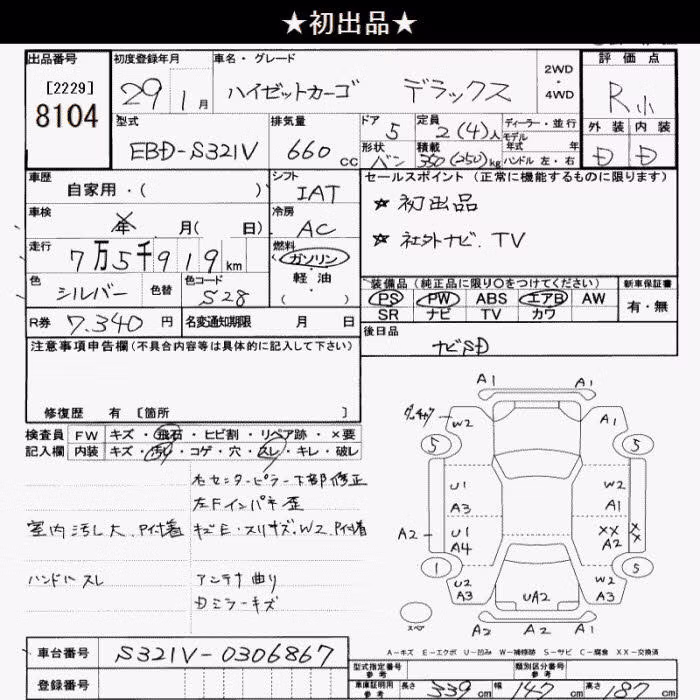 ★初出品★
出品番号
[2229]
8104
初度登録年月
29 1月
車名・グレード
ハイゼットカーゴ デラックス
2WD
・
4WD
評価点
R小
外装 内装
D D
型式
EBD-S321V
排気量
660 cc
ドア 5
形状 バン
定員 2(4)人
積載 350(250)kg
ディーラー・並行
モデル
年式 年
ハンドル 左・右
車歴
自家用・( )
シフト
IAT
車検
年 月( 日)
冷房
AC
走行
7万5千919km
燃料
ガソリン
・
軽油
( )
色
シルバー
色替
色コード
S28
R券 7.340円
名変通知期限 月 日
セールスポイント(正常に機能するものに限ります)
☆ 初出品
☆ 社外ナビ.TV
装備品(純正品に限り○をつけてください)
PS PW ABS エアB AW
SR ナビ TV カワ
新車保証書
有・無
後日品
ナビSD
注意事項申告欄(不具合内容等は具体的に記入して下さい)
修復歴 有 [箇所 ]
検査員 FW キズ・飛石・ヒビ割・リペア跡・×要
記入欄 内装 キズ・汚れ・コゲ・穴・スレ・キレ・破レ
右センターピラー下部修正
左Fインパネ歪
室内汚し大.P付着
キズE・スリキズ.W2.P付着
ハンドルスレ
アンテナ曲り
Dミラーキズ
A1 A1
W2 A1
5 5
U1 W2
A3 A1
A2 U1 XX XX
A4 A2
1 5
U2 W2
A3 UA2 A3
スペア
A2 A2 A1
A-キズ E-エクボ U-凹み W-補修跡 S-サビ C-腐食 XX-交換済
車台番号 S321V-0306867
登録番号
型式指定番号
参考
類別区分番号
参考
車庫証明用
参考
長さ 339cm 幅 147cm 高さ 187cm